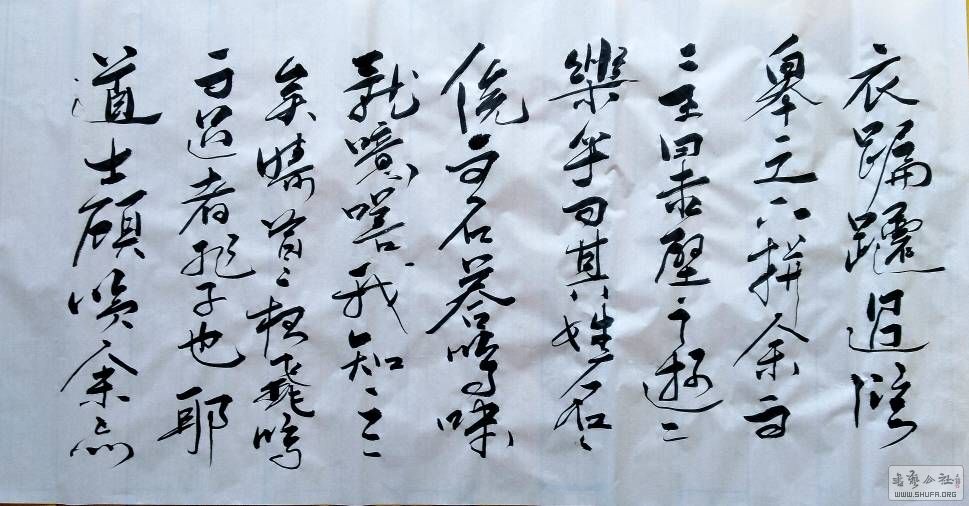 衣蹁躚過臨
皋之下揖余而
言曰赤壁之遊
樂乎問其姓名
俛而不荅嗚呼
噫嘻我知之
矣疇昔之夜飛鳴
而過我者非子也耶
道士顧笑余亦
书艺公社
WWW.SHUFA.ORG